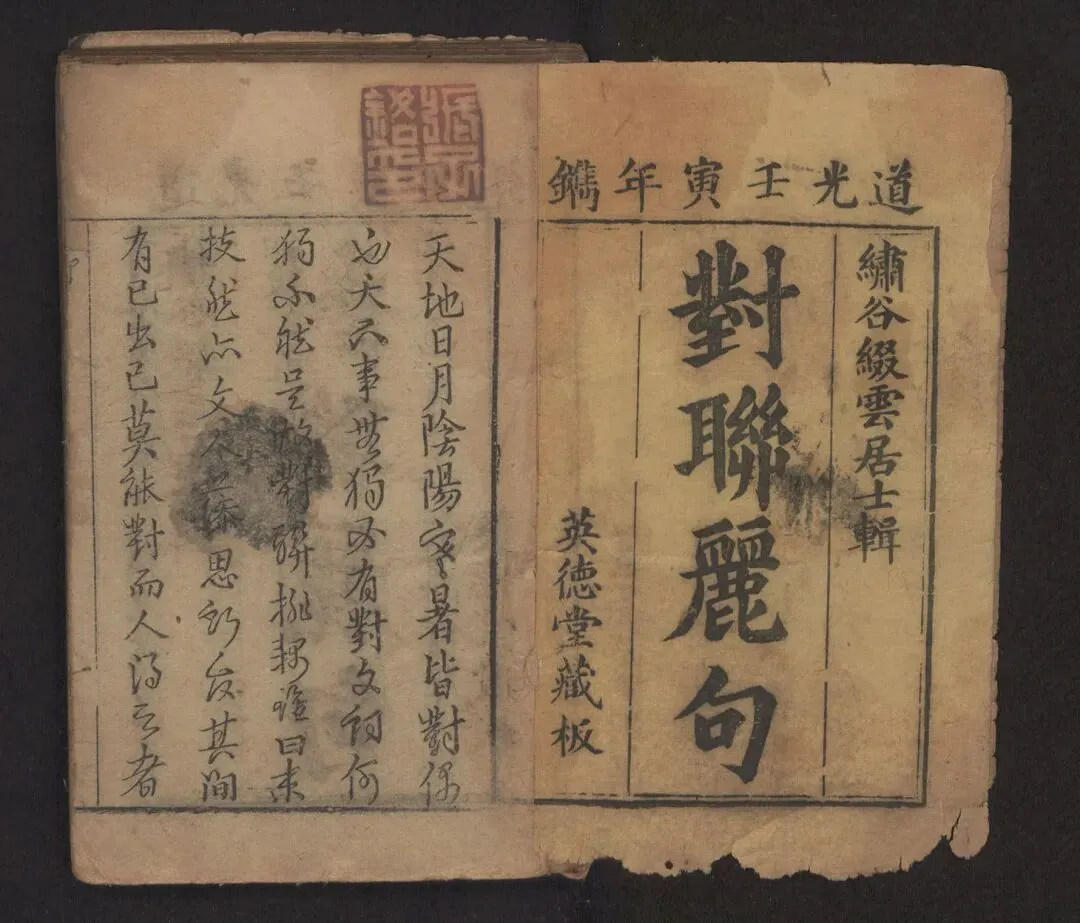 道光壬寅年鐫
繡谷綴雲居士輯
對聯麗句
英德堂藏板
天地日月陰陽寒暑皆對偶
也天下事無獨必有對文詞何
獨不然是故對聯排耦雖曰末
技然亦文人深思所及其間
有已出已莫能對而人得之者